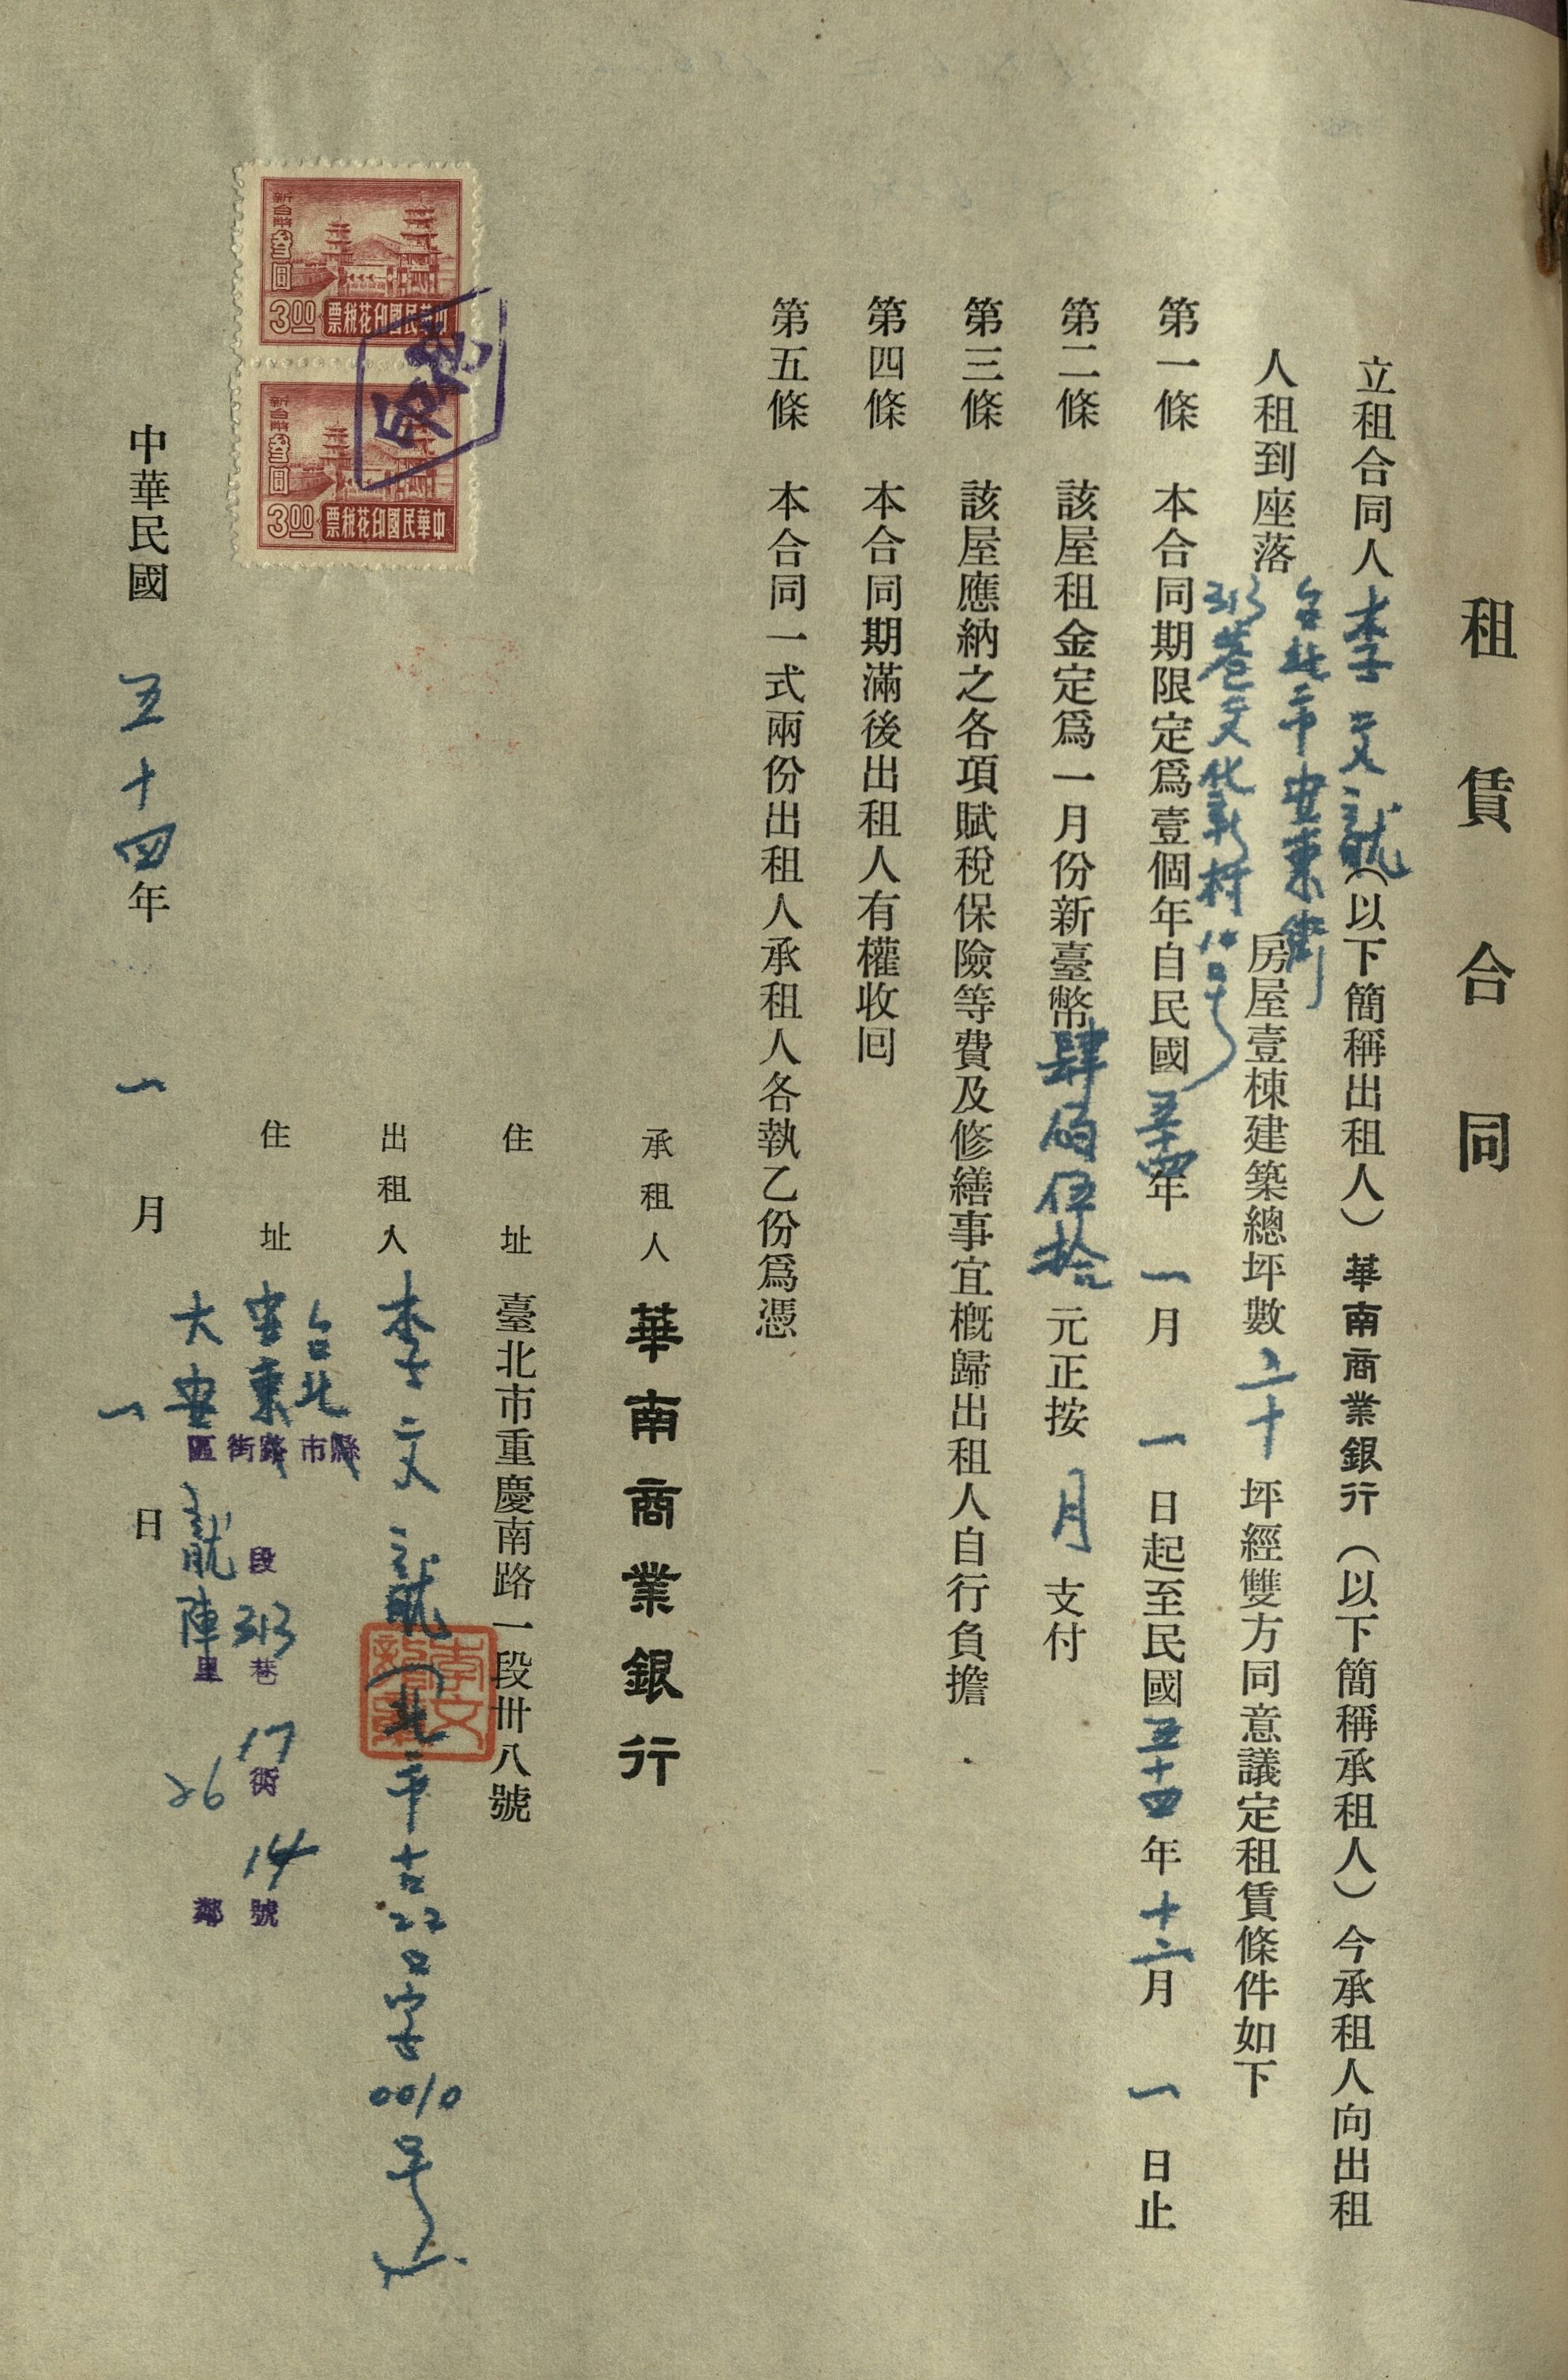 租賃合同
立租合同人李文龍（以下簡稱出租人）華南商業銀行（以下簡稱承租人）今承租人向出租
人租到座落台北市安東街313巷文化新村14号房屋壹棟建築總坪數二十坪經雙方同意議定租賃條件如下
第一條 本合同期限定爲壹個年自民國五十四年一月一日起至民國五十四年十二月一日止
第二條 該屋租金定爲一月份新臺幣肆佰伍拾元正按月支付
第三條 該屋應納之各項賦稅保險等費及修繕事宜概歸出租人自行負擔
第四條 本合同期滿後出租人有權收回
第五條 本合同一式兩份出租人承租人各執乙份爲憑
承租人 華南商業銀行
住址 臺北市重慶南路一段卅八號
出租人 李文龍（北市古22口字0010号）
李文龍
住址 台北市縣
安東街路段313巷17衖14號
大安區龍陣里26鄰
新台幣叁圓
3.00
中華民國印花稅票
新台幣叁圓
3.00
中華民國印花稅票
中華民國五十四年一月一日